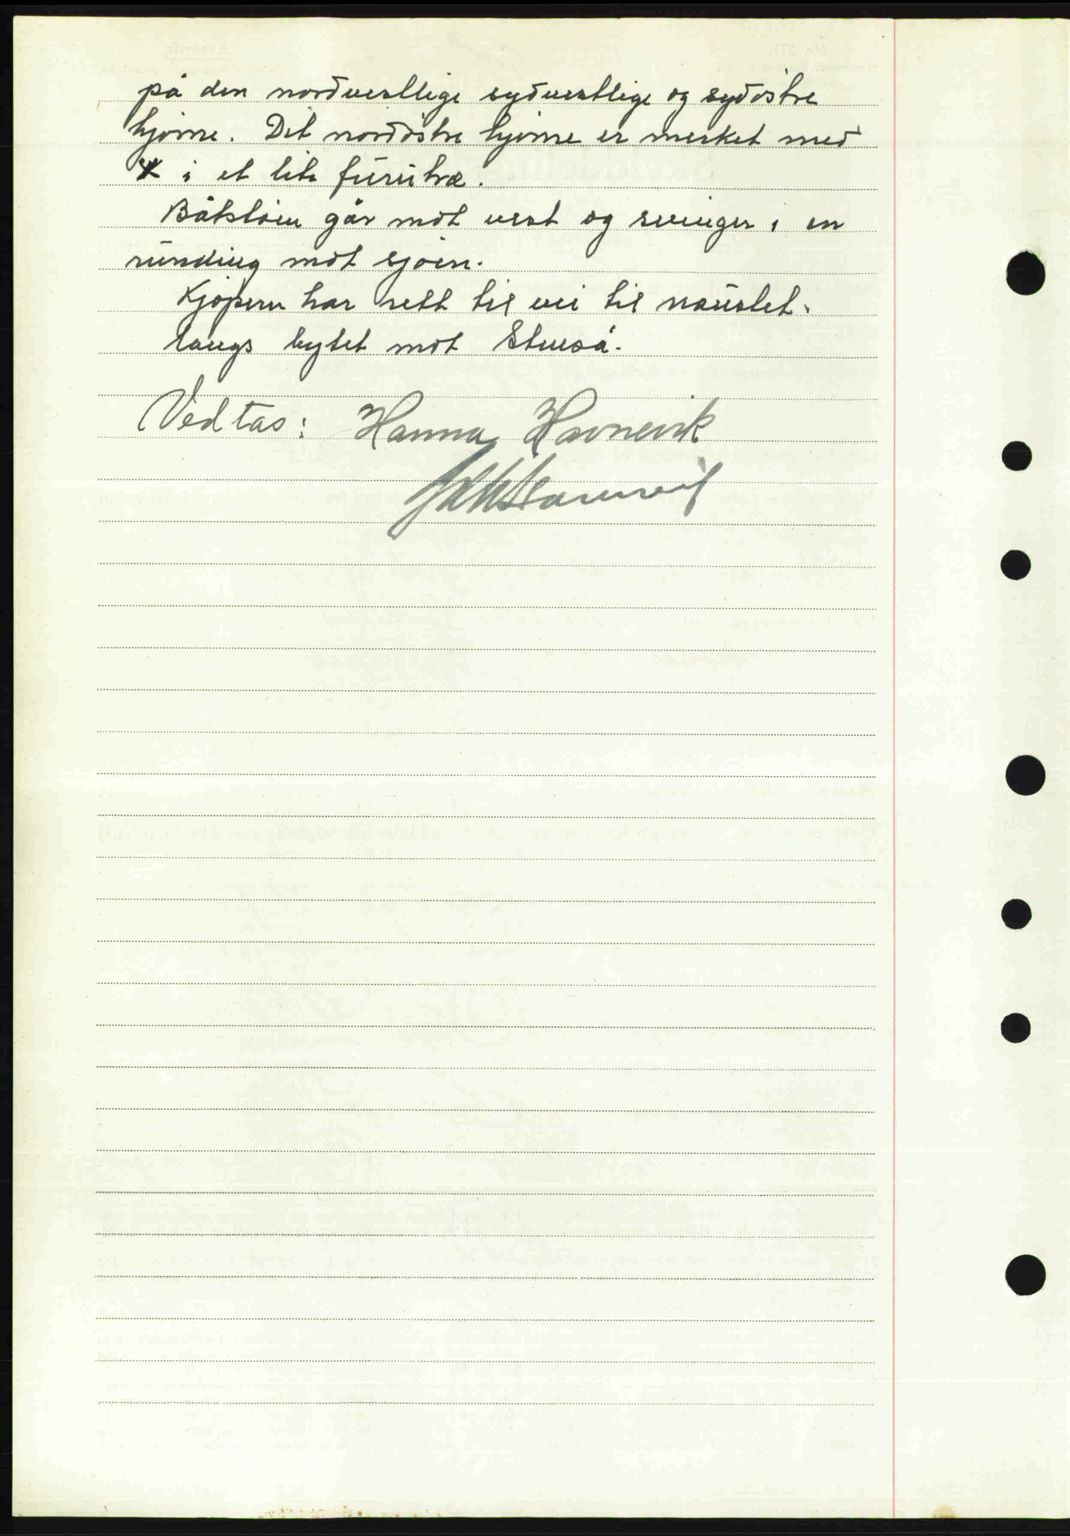 på den nordvestlige sydvestlige og sydöstre
hjörne. Det nordöstre hjörne er merket med
X i et lite furutræ.
Båtstöen går möt vest og svinger i en
runding möt sjöen.
Kjöperen har rett til vei til naustet.
langs bytet möt Stueså.
Vedtas: Hanna Havnevik